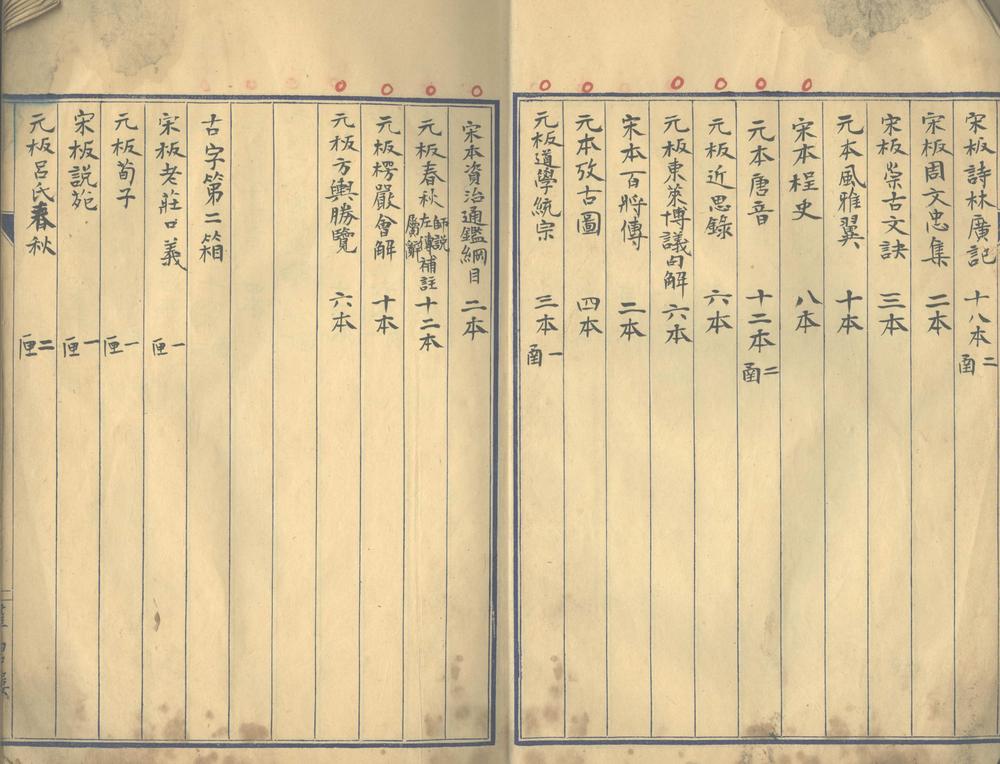 宋板詩林廣記 十八本 二函
宋板周文忠集 二本
宋板崇古文訣 三本
元本風雅翼 十本
宋本桯史 八本
元本唐音 十二本 二函
元板近思錄 六本
元板東萊博議句解 六本
宋本百將傳 二本
元本攷古圖 四本
元板道學統宗 三本 一函
宋本資治通鑑綱目 二本
元板春秋師說左傳補註屬辭 十二本
元板楞嚴會解 十本
元板方輿勝覽 六本
古字第二箱
宋板老莊口義 一匣
元板荀子 一匣
宋板說苑 一匣
元板呂氏春秋 二匣